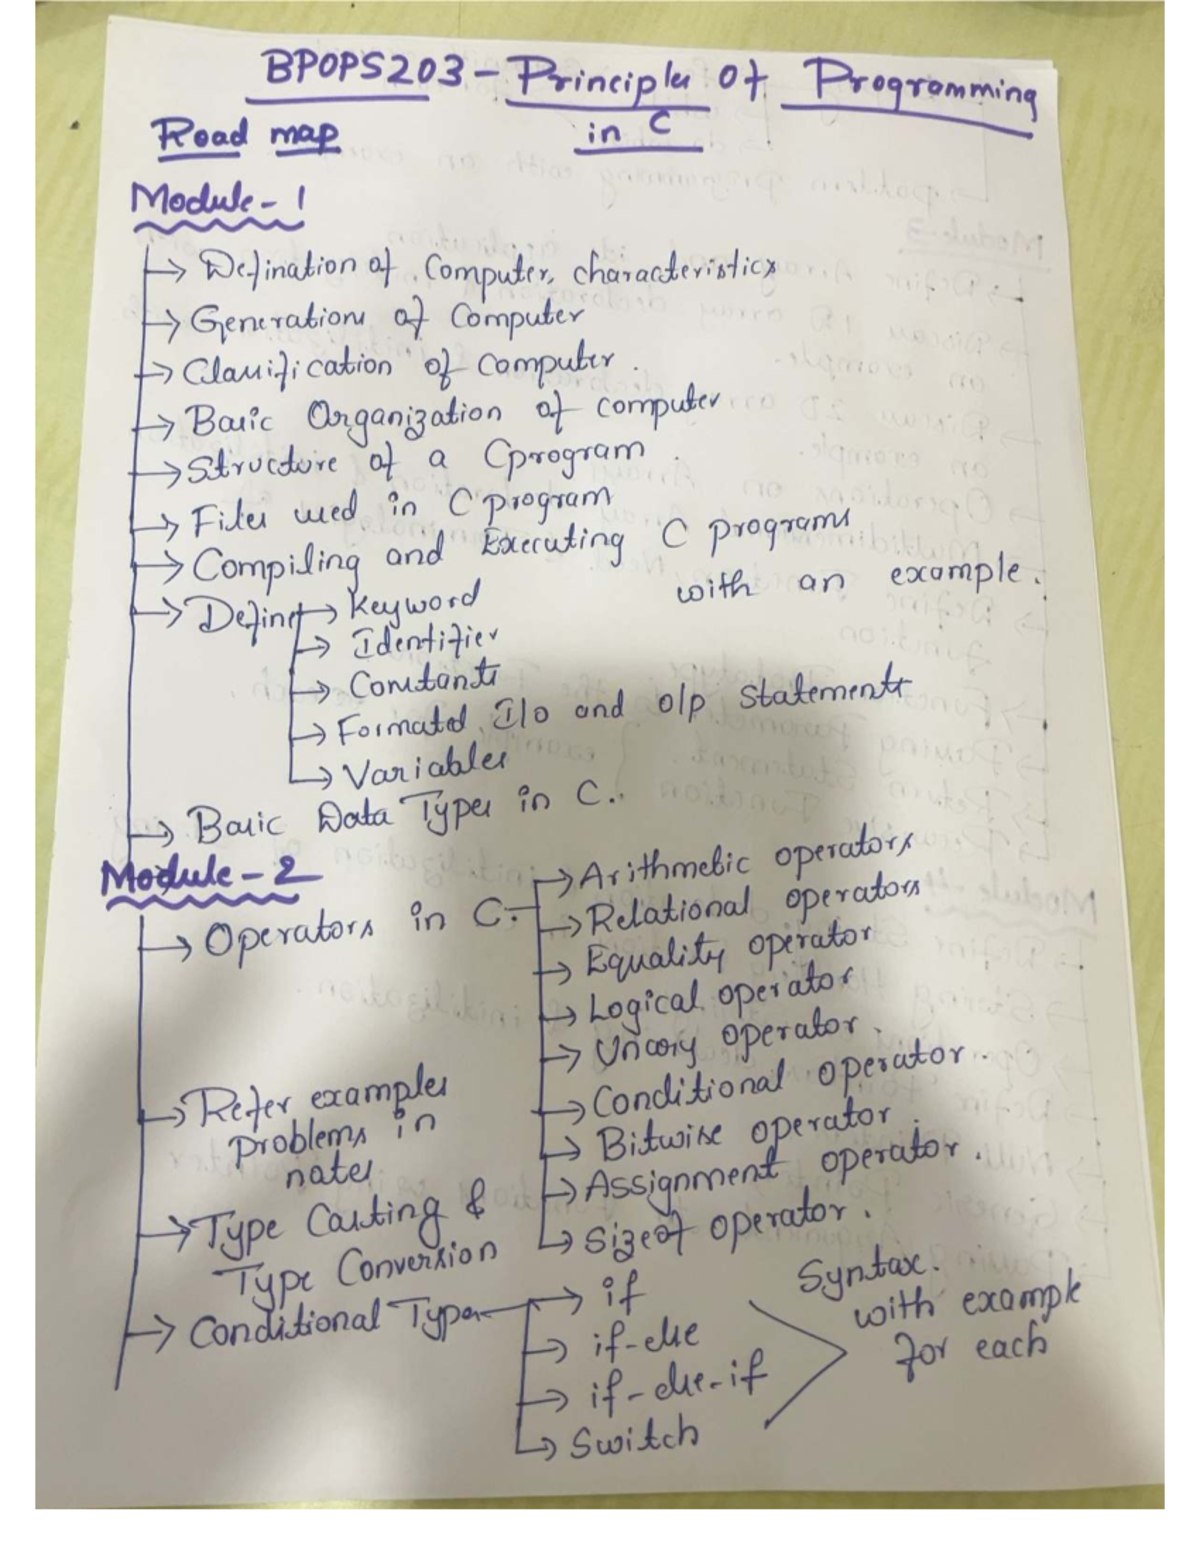 BPOPS203 - Principles Of Programming
in C
Road map
Module - 1
→ Defination of Computer, characteristics
→ Generations of Computer
→ Classification of Computer.
→ Basic Organization of computer
→ Structure of a C program.
→ Files used in C program
→ Compiling and Executing C programs
with an example.
→ Define → Keyword
→ Identifier
→ Constants
→ Formated I/o and o/p statements
→ Variables
→ Basic Data Types in C.
Module - 2
→ Operators in C. → Arithmetic operators
→ Relational operators
→ Equality operator
→ Logical operator
→ Unary operator.
→ Conditional operator.
→ Bitwise operator.
→ Assignment operator.
→ Sizeof operator.
→ Refer examples
problems in
notes
→ Type Casting &
Type Conversion
→ Conditional Types → if
→ if-else
→ if-else-if
→ Switch
Syntax.
with example
for each